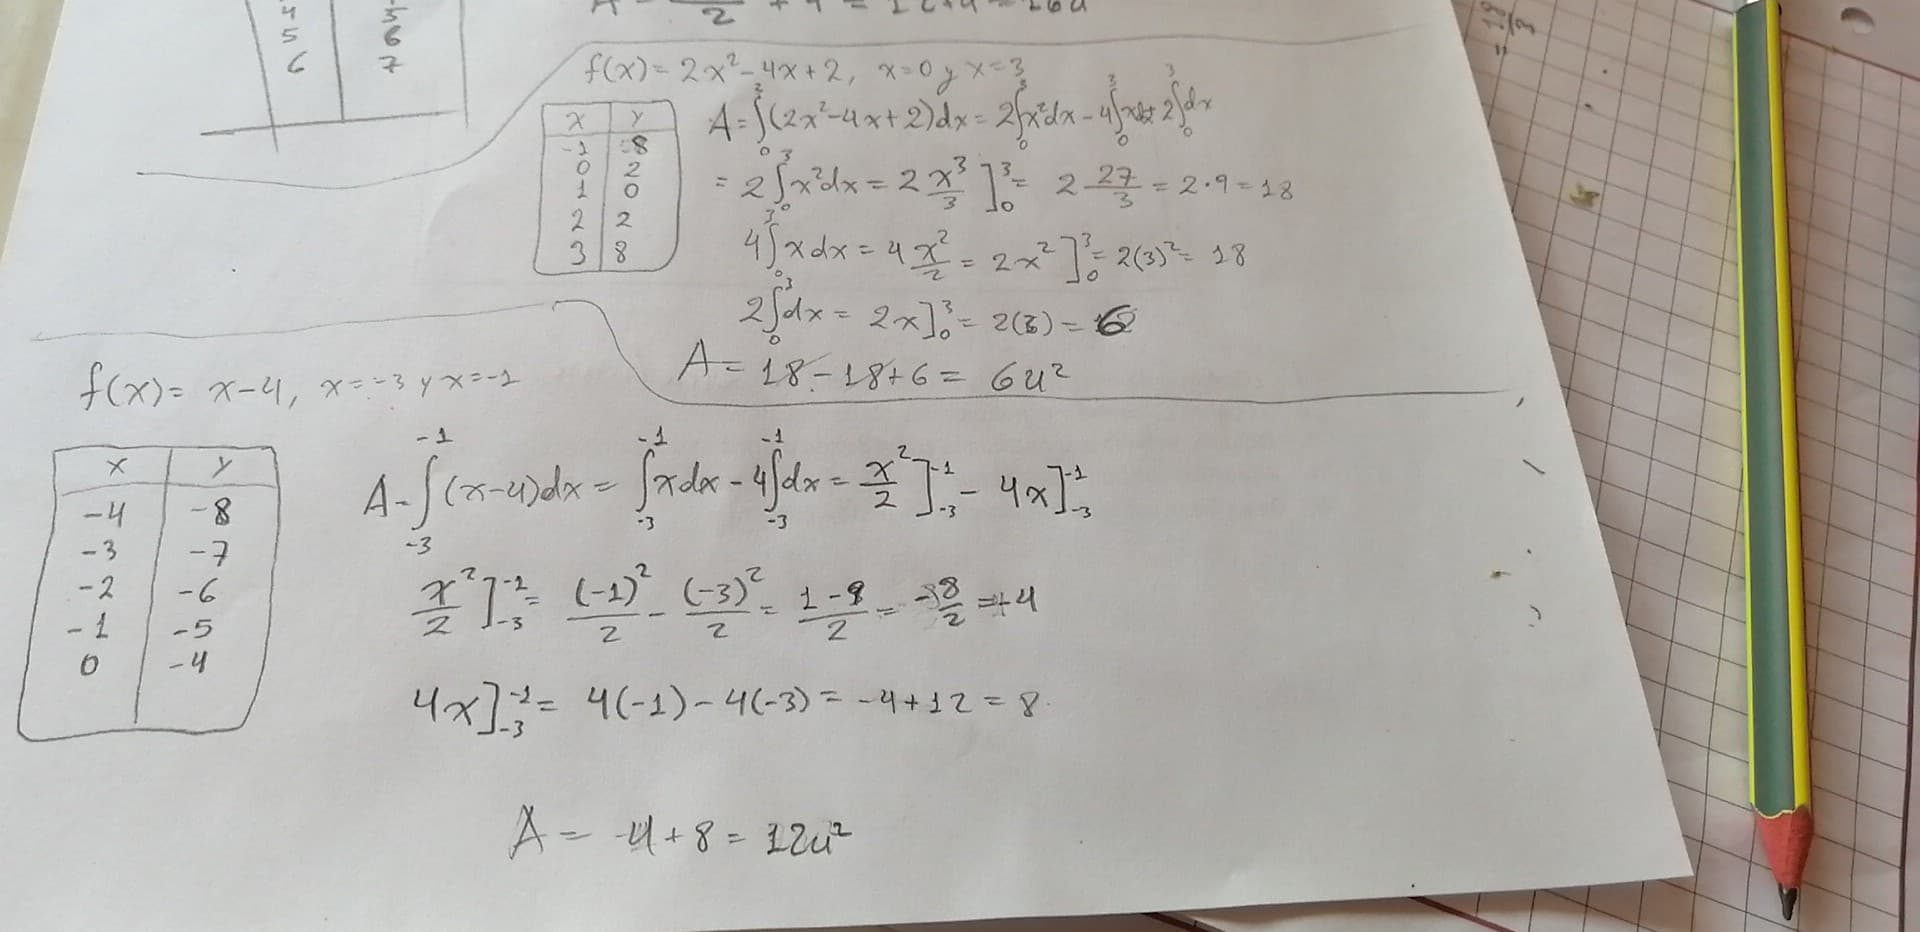 4 5
5 6
6 7
f(x) = 2x² - 4x + 2, x=0 y x=3
x y
-1 8
0 2
1 0
2 2
3 8
A = ∫₀³ (2x² - 4x + 2)dx = 2∫₀³x²dx - 4∫₀³xdx + 2∫₀³dx
= 2∫₀³x²dx = 2 x³/3 ]₀³ = 2 27/3 = 2·9 = 18
4∫₀³xdx = 4 x²/2 = 2x² ]₀³ = 2(3)² = 18
2∫₀³dx = 2x]₀³ = 2(3) = 6
A = 18 - 18 + 6 = 6u²
f(x) = x-4, x=-3 y x=-1
x y
-4 -8
-3 -7
-2 -6
-1 -5
0 -4
A = ∫₋₃⁻¹ (x-4)dx = ∫₋₃⁻¹ xdx - 4∫₋₃⁻¹ dx = x²/2 ]₋₃⁻¹ - 4x]₋₃⁻¹
x²/2 ]₋₃⁻¹ = (-1)²/2 - (-3)²/2 = 1-9/2 = 8/2 = +4
4x]₋₃⁻¹ = 4(-1) - 4(-3) = -4 + 12 = 8
A = -4 + 8 = 12u²